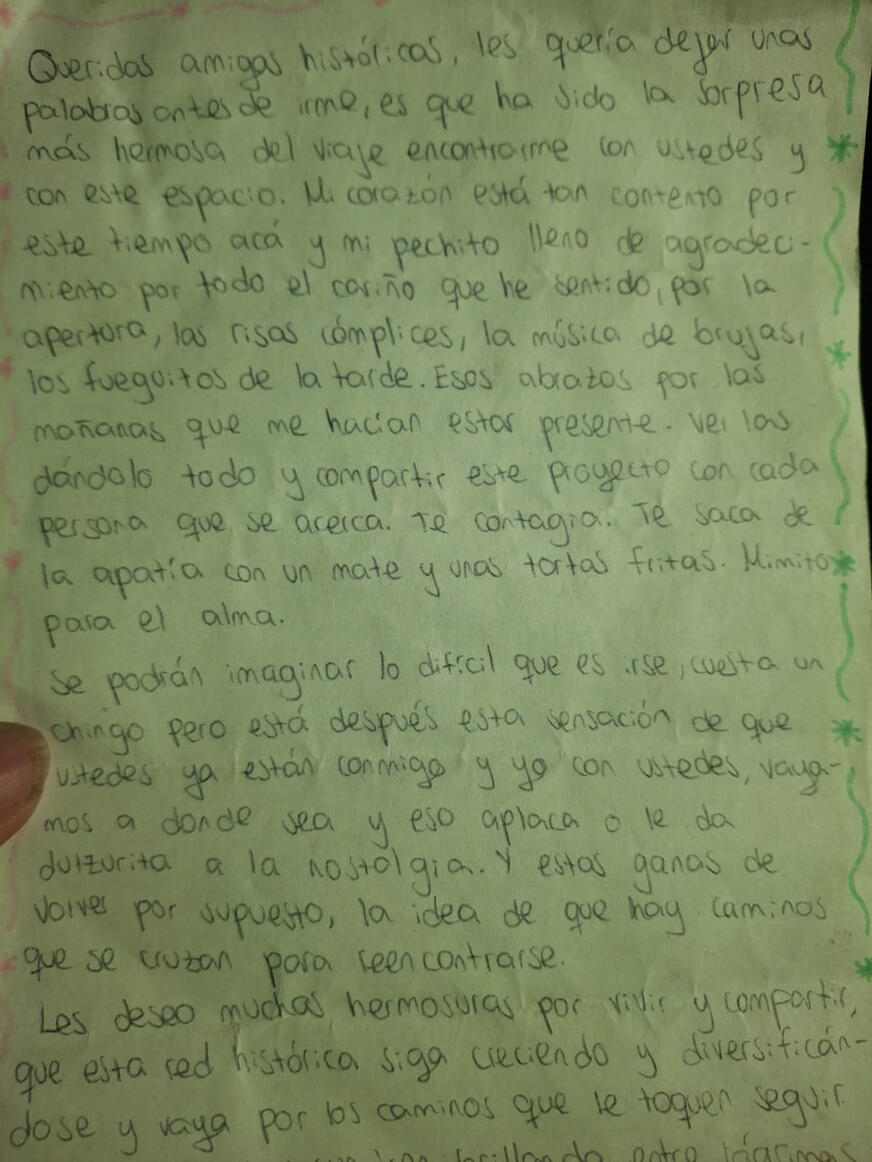 Queridas amigas históricas, les quería dejar unas
palabras antes de irme, es que ha sido la sorpresa
más hermosa del viaje encontrarme con ustedes y
con este espacio. Mi corazón está tan contento por
este tiempo acá y mi pechito lleno de agradeci-
miento por todo el cariño que he sentido, por la
apertura, las risas cómplices, la música de brujas,
los fueguitos de la tarde. Esos abrazos por las
mañanas que me hacían estar presente. Verlas
dándolo todo y compartir este proyecto con cada
persona que se acerca. Te contagia. Te saca de
la apatía con un mate y unas tortas fritas. Mimito
para el alma.
Se podrán imaginar lo difícil que es irse, cuesta un
chingo pero está después esta sensación de que
ustedes ya están conmigo y yo con ustedes, vaya-
mos a donde sea y eso aplaca o le da
dulzurita a la nostalgia. Y estas ganas de
volver por supuesto, la idea de que hay caminos
que se cruzan para reencontrarse.
Les deseo muchas hermosuras por vivir y compartir,
que esta red histórica siga creciendo y diversificán-
dose y vaya por los caminos que le toquen seguir.
brillando entre lágrimas